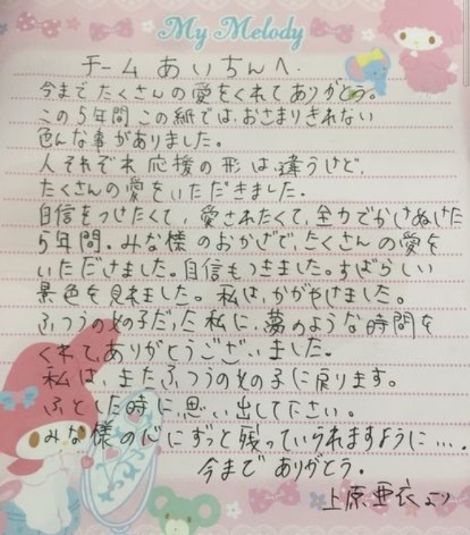 My Melody
チームあいちんへ.
今までたくさんの愛をくれてありがとう。
この5年間この紙では、おさまりきれない
色んな事がありました。
人それぞれ応援の形は違うけど、
たくさんの愛をいただきました.
自信をつけたくて、愛されたくて、全力でかけぬけた
5年間.みな様のおかげで、たくさんの愛を
いただけました。自信もつきました。すばらしい
景色を見れました。私は、かがやけました。
ふつうの女の子だった私に、夢のような時間を
くれて、ありがとうございました。
私は、またふつうの女の子に戻ります。
ふとした時に、思い出して下さい。
みな様の心にずっと残っていられますように….
今までありがとう.
上原亜衣より